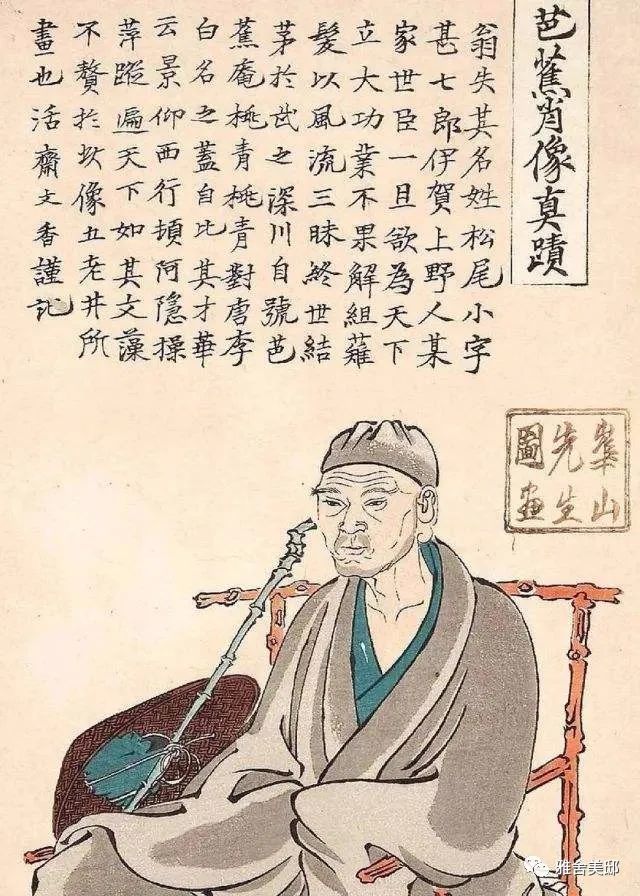 芭蕉肖像真蹟
翁失其名姓松尾小字
甚七郎伊賀上野人某
家世臣一旦欲為天下
立大功業不果解組薙
髮以風流三昧終世結
茅於武之深川自號芭
蕉庵桃青桃青對唐李
白名之蓋自比其才華
云景仰西行頓阿隱操
萍蹤遍天下如其文藻
不贅於玆像五老井所
畫也活齋文香謹記
崋山
先生
圖画
雅舍美邸